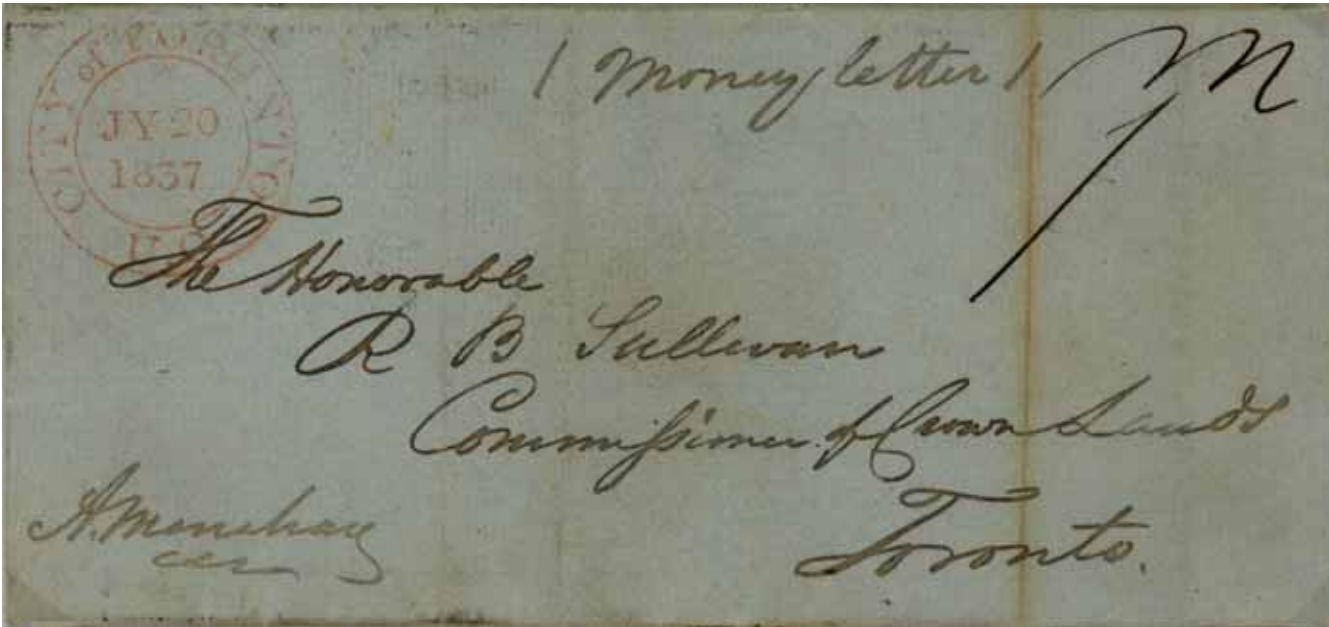 CITY of TORONTO
JY 20
1837
U.C
/ Money letter /
The Honorable
R B Sullivan
Commissioner of Crown Lands
Toronto.
A. Manahan